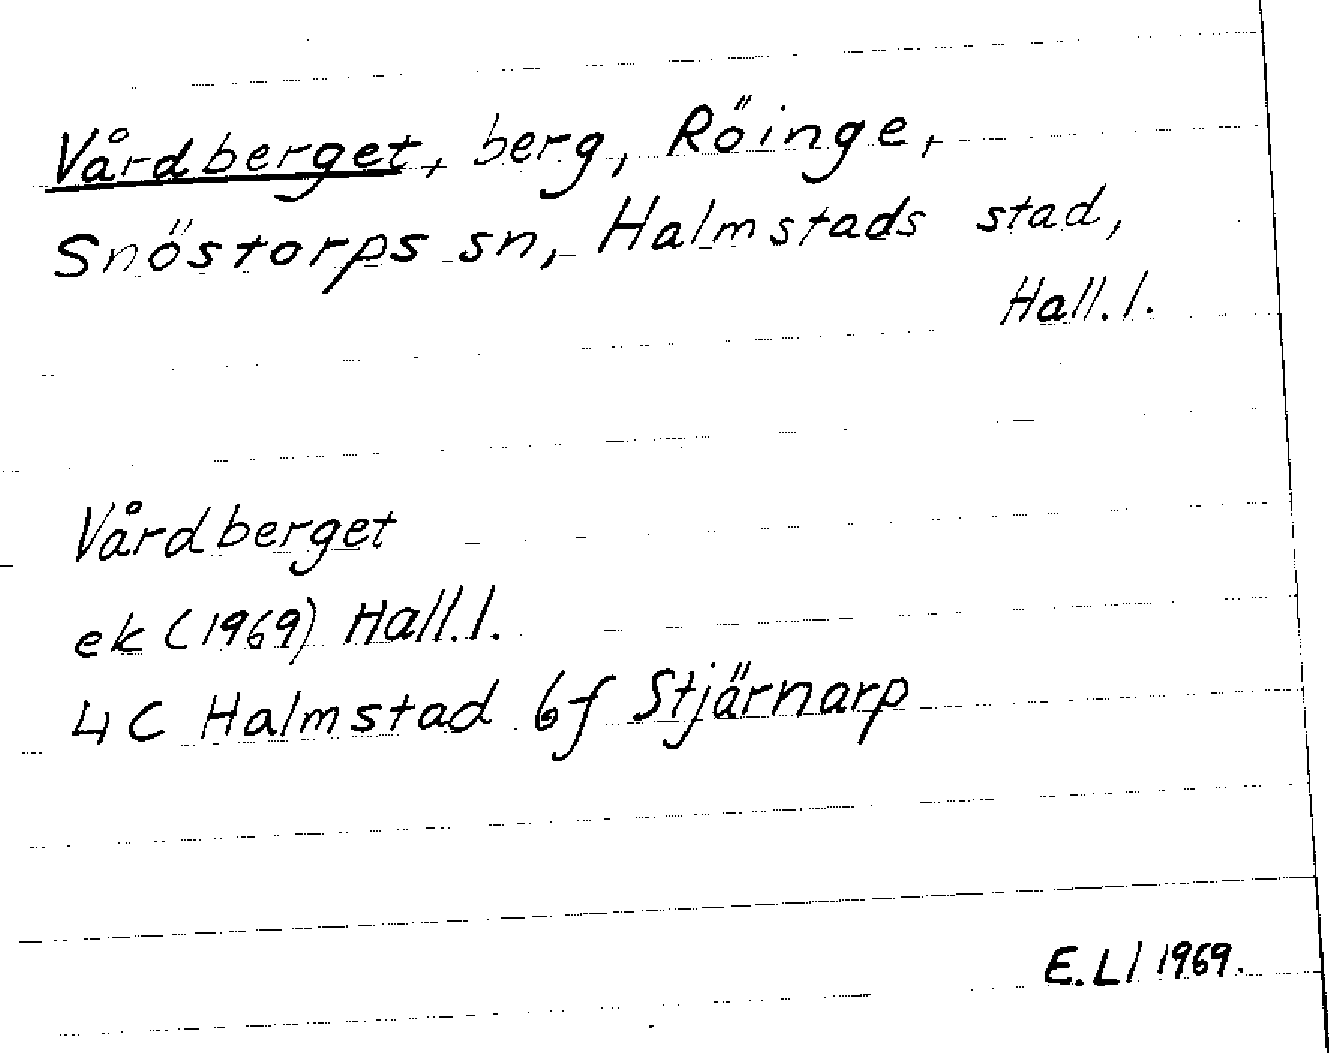 Vårdberget, berg, Röinge,
Snöstorps sn, Halmstads stad,
Hall. l.
Vårdberget
ek (1969) Hall. l.
4C Halmstad 6f Stjärnarp
E. Ll 1969.